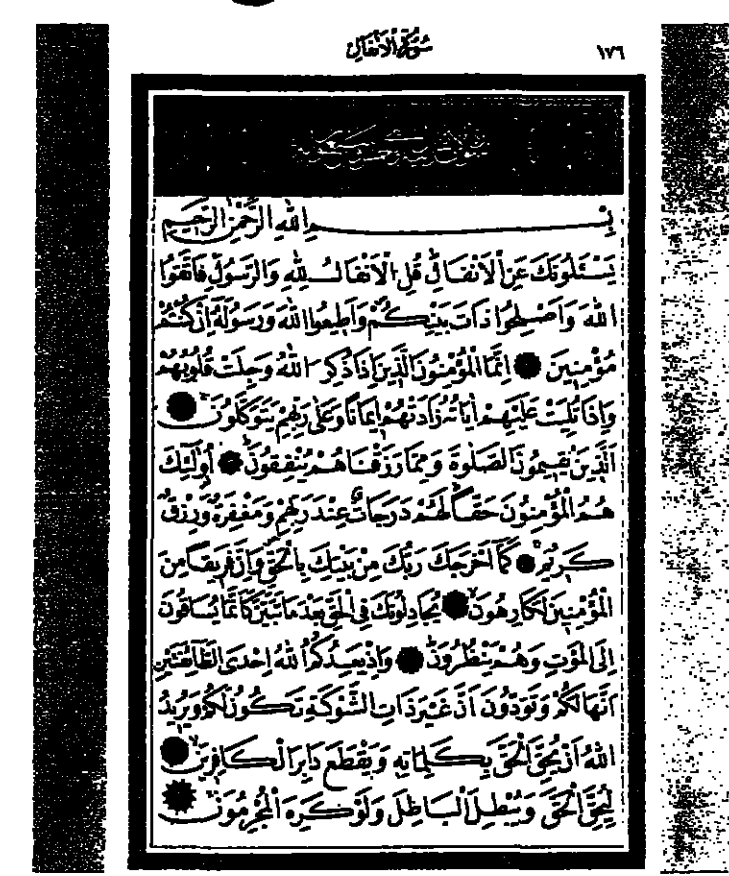 سُورَةُ الْأَنْفَالِ ١٧٦
بِسْمِ اللّٰهِ الرَّحْمٰنِ الرَّحِيمِ
يَسْـَٔلُونَكَ عَنِ الْاَنْفَالِۜ قُلِ الْاَنْفَالُ لِلّٰهِ وَالرَّسُولِۚ فَاتَّقُوا
اللّٰهَ وَاَصْلِحُوا ذَاتَ بَيْنِكُمْ وَاَطِيعُوا اللّٰهَ وَرَسُولَهُٓ اِنْ كُنْتُمْ
مُؤْمِنِينَ اِنَّمَا الْمُؤْمِنُونَ الَّذِينَ اِذَا ذُكِرَ اللّٰهُ وَجِلَتْ قُلُوبُهُمْ
وَاِذَا تُلِيَتْ عَلَيْهِمْ اٰيَاتُهُ زَادَتْهُمْ اِيمَانًا وَعَلٰى رَبِّهِمْ يَتَوَكَّلُونَۚ
اَلَّذِينَ يُقِيمُونَ الصَّلٰوةَ وَمِمَّا رَزَقْنَاهُمْ يُنْفِقُونَۜ اُو۬لٰٓئِكَ
هُمُ الْمُؤْمِنُونَ حَقًّاۜ لَهُمْ دَرَجَاتٌ عِنْدَ رَبِّهِمْ وَمَغْفِرَةٌ وَرِزْقٌ
كَرِيمٌۚ كَمَٓا اَخْرَجَكَ رَبُّكَ مِنْ بَيْتِكَ بِالْحَقِّۖ وَاِنَّ فَرِيقًا مِنَ
الْمُؤْمِنِينَ لَكَارِهُونَۙ يُجَادِلُونَكَ فِي الْحَقِّ بَعْدَ مَا تَبَيَّنَ كَاَنَّمَا يُسَاقُونَ
اِلَى الْمَوْتِ وَهُمْ يَنْظُرُونَۜ وَاِذْ يَعِدُكُمُ اللّٰهُ اِحْدَى الطَّٓائِفَتَيْنِ
اَنَّهَا لَكُمْ وَتَوَدُّونَ اَنَّ غَيْرَ ذَاتِ الشَّوْكَةِ تَكُونُ لَكُمْ وَيُرِيدُ
اللّٰهُ اَنْ يُحِقَّ الْحَقَّ بِكَلِمَاتِهِ وَيَقْطَعَ دَابِرَ الْكَافِرِينَۙ
لِيُحِقَّ الْحَقَّ وَيُبْطِلَ الْبَاطِلَ وَلَوْ كَرِهَ الْمُجْرِمُونَۚ